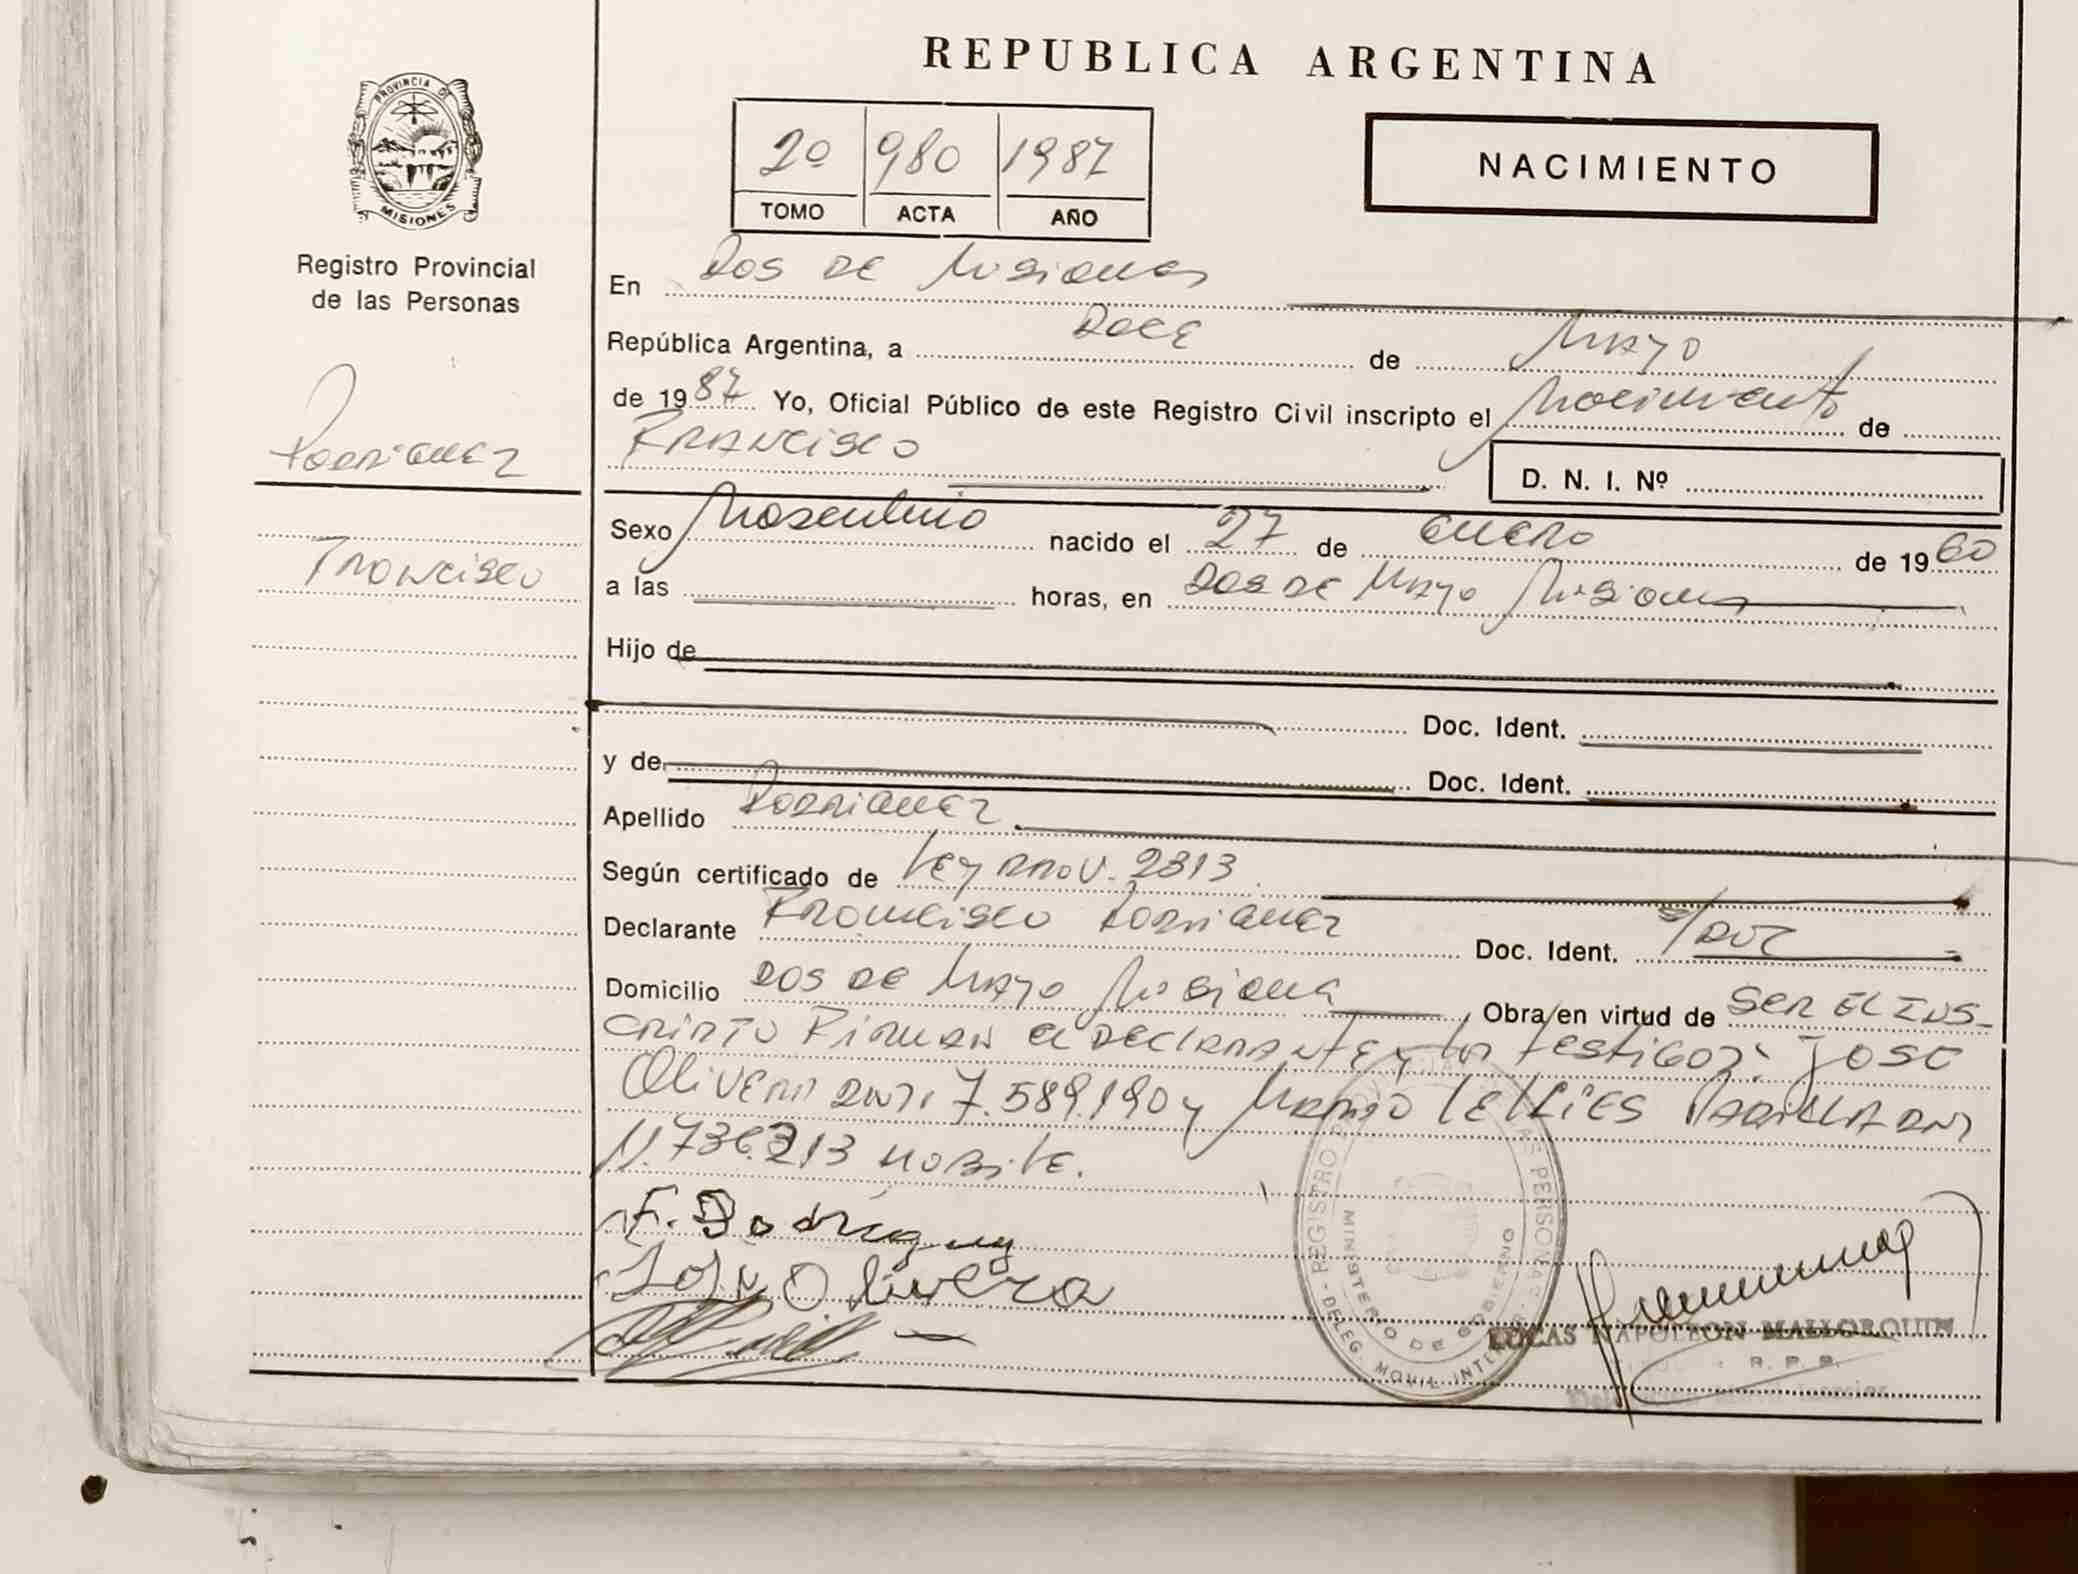 REPUBLICA ARGENTINA
PROVINCIA DE
MISIONES
Registro Provincial
de las Personas
Rodriguez
Francisco
2º 980 1987
TOMO ACTA AÑO
NACIMIENTO
En Dos de Misiones
República Argentina, a Doce de Mayo
de 1987 Yo, Oficial Público de este Registro Civil inscripto el Nacimiento de
Francisco
D. N. I. Nº
Sexo Masculino nacido el 27 de Enero de 1960
a las horas, en Dos de Mayo Misiones
Hijo de
Doc. Ident.
y de Doc. Ident.
Apellido Rodriguez
Según certificado de Ley Prov. 2313
Declarante Francisco Rodriguez Doc. Ident. s/Doc
Domicilio Dos de Mayo Misiones Obra en virtud de Ser el Ins-
cripto Firman el declarante y los testigos: Jose
Olivera DNI. 7.589.190 y Mario DNI
11.736.213
F. Rodriguez
José Olivera
REGISTRO PERSONAS
MINISTERIO DE GOBIERNO
DELEG. MOVIL
LUCAS NAPOLEON MALLORQUIN
R. P. P.